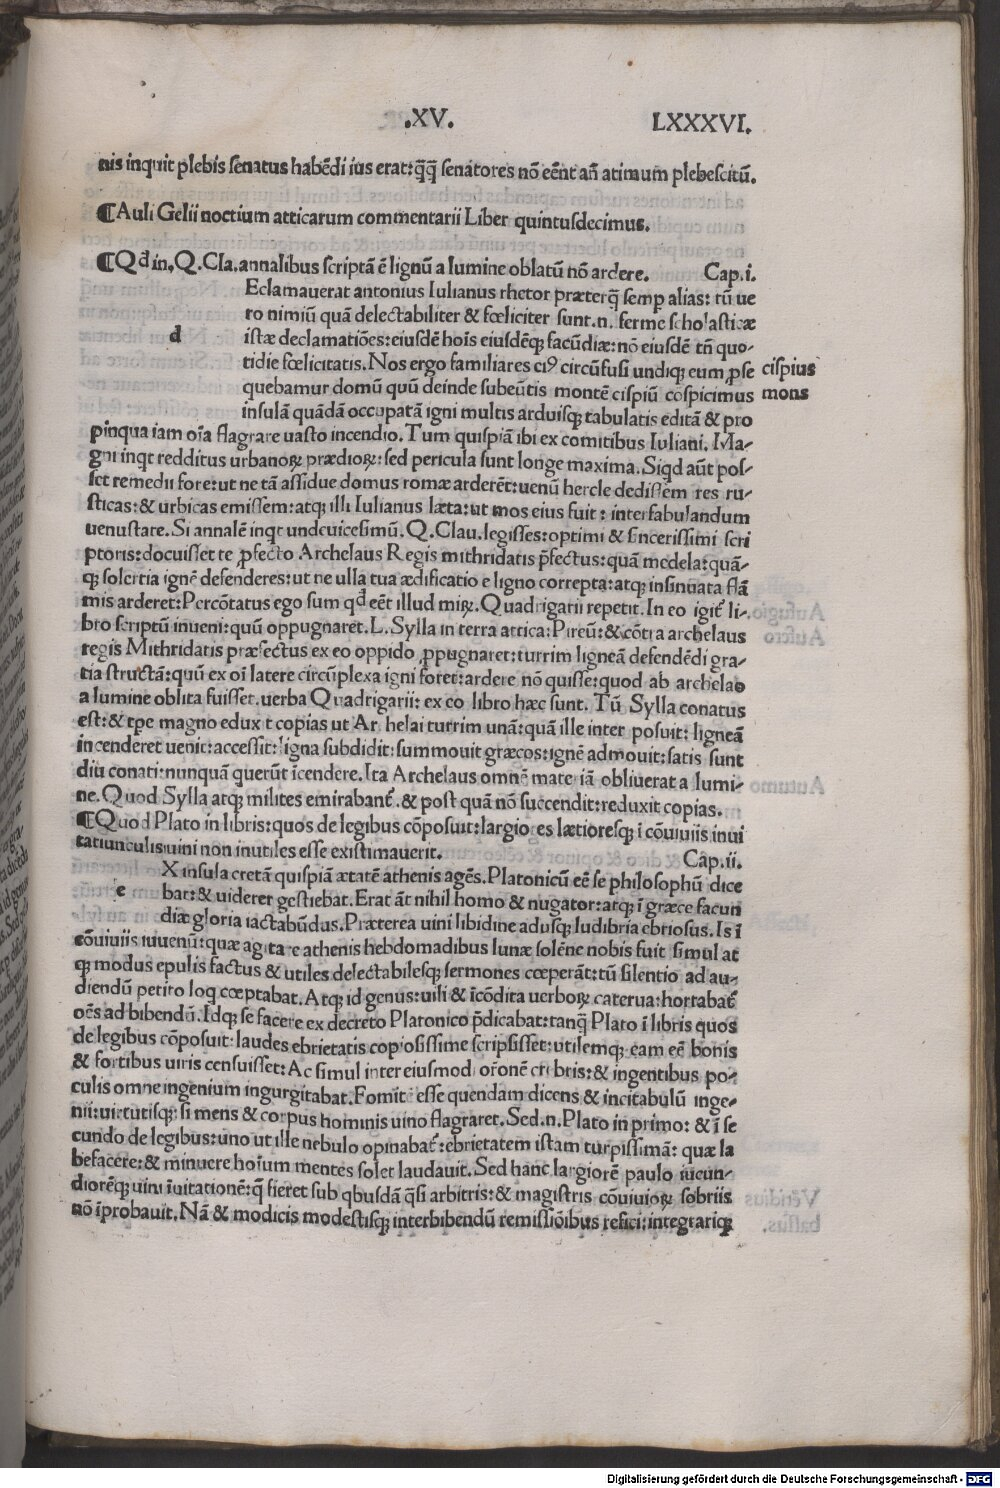 .XV. LXXXVI.
nis inquit plebis senatus habēdi ius erat: q̄q̄ senatores nō eēnt añ atinium plebescitū.
¶Auli Gelii noctium atticarum commentarii Liber quintusdecimus.
¶Qd in. Q. Cla. annalibus scriptā ē lignū a lumine oblatū nō ardere. Cap. i.
Eclamauerat antonius Iulianus rhetor præterq̄ semp alias: tū ue
ro nimiū quā delectabiliter & fœliciter sunt .n. ferme scholasticæ
d istæ declamatiōes: eiusdē hoīs eiusdēqꝫ facūdiæ: nō eiusdē tñ quo-
tidie fœlicitatis. Nos ergo familiares ciꝰ circūfusi undiqꝫ eum ꝓse
quebamur domū quū deinde subeūtis montē cispiū cōspicimus
cispius
mons
insulā quādā occupatā igni multis arduisqꝫ tabulatis editā & pro
pinqua iam oīa flagrare uasto incendio. Tum quispiā ibi ex comitibus Iuliani. Ma-
gni inqt redditus urbanoꝝ prædioꝝ: sed pericula sunt longe maxima. Siqd aūt pos-
set remedii fore: ut ne tā assidue domus romæ arderēt: uenū hercle dedissem res ru-
sticas: & urbicas emissem: atqꝫ illi Iulianus læta: ut mos eius fuit: inter fabulandum
uenustate. Si annalē inqt undeuicesimū. Q. Clau. legisses: optimi & sincerissimi scri
ptoris: docuisset te ꝓfecto Archelaus Regis mithridatis p̄fectus: quā medela: quā-
qꝫ solertia ignē defenderes: ut ne ulla tua ædificatio e ligno correpta: atqꝫ insinuata flā
mis arderet: Percōtatus ego sum qd eēt illud miꝝ. Quadrigarii repetit. In eo igit̄ li-
bro scriptū inueni: quū oppugnaret. L. Sylla in terra attica: Pireū: & cōtra archelaus
regis Mithridatis præfectus ex eo oppido ꝓpugnaret: turrim ligneā defendēdi gra-
tia structā: quū ex oī latere circūplexa igni foret: ardere nō quisse: quod ab archelao
a lumine oblita fuisset. uerba Quadrigarii: ex eo libro hæc sunt. Tū Sylla conatus
est: & tpe magno eduxit copias ut Archelai turrim unā: quā ille inter posuit: ligneā
incenderet uenit: accessit: ligna subdidit: summouit græcos: ignē admouit: satis sunt
diu conati: nunquā querūt īcendere. Ita Archelaus omnē materiā obliuerat a lumi-
ne. Quod Sylla atqꝫ milites emirabant̄. & post quā nō succendit: reduxit copias.
¶Quod Plato in libris: quos de legibus cōposuit: largiores lætioresqꝫ ī cōuiuiis inui
tatiunculis uini non inutiles esse existimauerit. Cap. ii.
X insula cretā quispiā ætatē athenis agēs. Platonicū eē se philosophū dice
e bat: & uiderer gestiebat. Erat āt nihil homo & nugator: atqꝫ ī græce facun
diæ gloria iactabūdus. Præterea uini libidine adusqꝫ ludibria ebriosus. Is ī
cōuiuiis iuuenū: quæ agitare athenis hebdomadibus lunæ solēne nobis fuit simul at
qꝫ modus epulis factus & utiles delectabilesqꝫ sermones cœperāt: tū silentio ad au-
diendū petito loq cœptabat. Atqꝫ id genus: uili & īcōdita uerboꝝ caterua: hortabat̄
oēs ad bibendū. Idqꝫ se facere ex decreto Platonico p̄dicabat: tanq̄ Plato ī libris quos
de legibus cōposuit: laudes ebrietatis copiosissime scripsisset: utilemqꝫ eam eē bonis
& fortibus uiris censuisset: Ac simul inter eiusmodi orōnē crebris: & ingentibus po-
culis omne ingenium ingurgitabat. Fomit̄ esse quendam dicens & incitabulū inge-
nii: uirtutisqꝫ: si mens & corpus hominis uino flagraret. Sed .n. Plato in primo: & ī se
cundo de legibus: uno ut ille nebulo opinabat̄: ebrietatem istam turpissimā: quæ la
befacere: & minuere hoīum mentes solet laudauit. Sed hanc largiorē paulo iucun-
diorēqꝫ uini īuitationē: q̄ fieret sub qbusdā q̄si arbitris: & magistris cōuiuioꝝ sobriis
nō īprobauit. Nā & modicis modestisqꝫ inter bibendū remissiōibus refici: integrariqꝫ
Digitalisierung gefördert durch die Deutsche Forschungsgemeinschaft - DFG